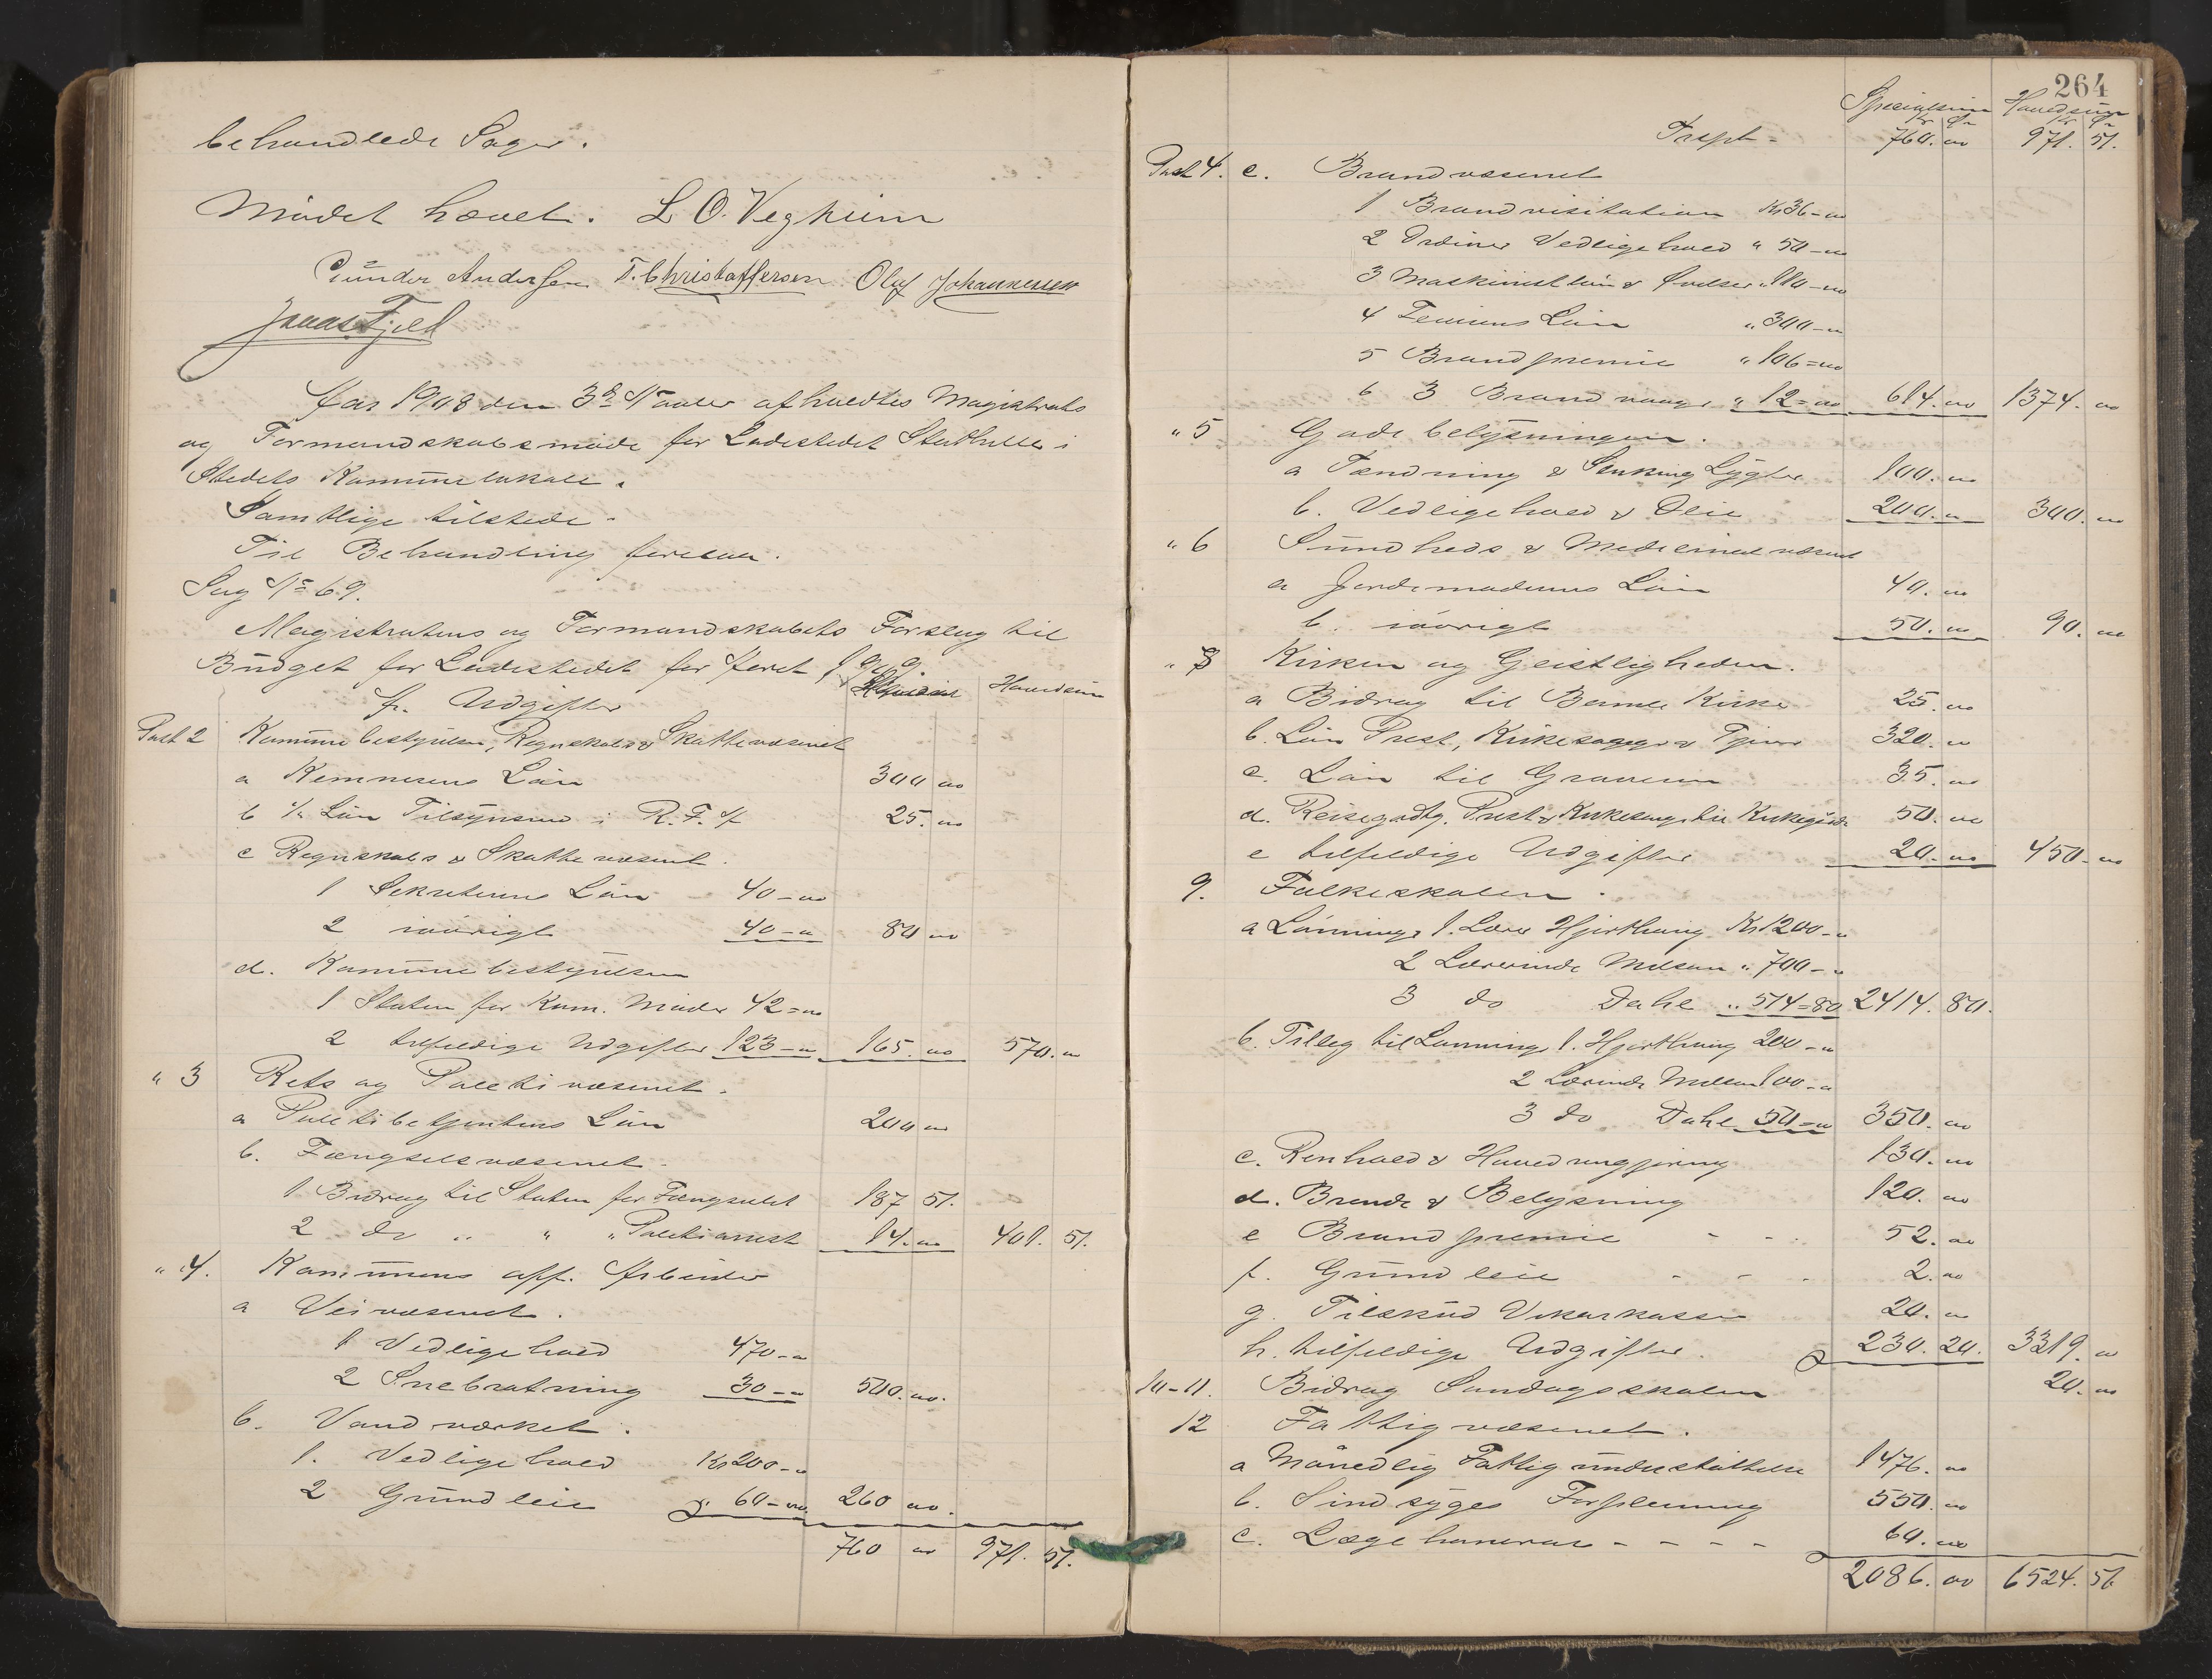 behandlede Sager.
Mødet hævet. L O. Vegheim
Gunder Andersen T. Christoffersen Oluf Johannessen
Jonas Fjeld
Aar 1908 den 3de afholdtes Magistrats
og Formandskabsmøde for Ladestedet Stathelle i
Stedets Kommunelokale.
Samtlige tilstede.
Til Behandling forelaa.
Sag No 69.
Magistratens og Formandskabets Forslag til
Budget for Ladestedet for Aaret 1909.
Hovedsum
A. Udgifter
Post 2 Kommunebestyrelsen, Regnskabs & Skattevæsenet
a Kemnerens Løn 300 00
b Løn Tilsynsmd i R. F. 25. 00
c Regnskabs & Skattevæsenet.
1 Sekretærens Løn 40 - 00
2 iøvrigt 40 - 00 80 00
d. Kommunebestyrelsen
1 Staten for Kom. Møder 42 = 00
2 tilfeldige Udgifter 123 - 00 165. 00 570. 00
" 3 Rets og Politivæsenet.
a Politibetjentens Løn 200 00
b. Fængselsvæsenet.
1 Bidrag til Staten for Fængselet 187 51.
2 do " " " Politiarrest 14. 00 401. 51.
" 4. Kommunens off. Arbeider
a Veivæsenet.
1 Vedligehold 470 - 00
2 Snebrøtning 30 - 00 500. 00.
b. Vandværket.
1. Vedligehold Kr 200 - 00
2 Grundleie 60 - 00 260 00.
760 00 971. 51.
264
Specialsum Hovedsum
Kr Ør Kr Ør
Trspt = 760. 00 971. 51.
Post 4. c. Brandvæsenet
1 Brandvisitation Kr 36 - 00
2 Ordinær Vedligehold " 50 - 00
3 Maskinistløn & Øvelser " 110 - 00
4 Løn " 300 - 00
5 Brandpremie " 106 = 00
6 3 Brandvagt " 12 = 00 614. 00 1374. 00
" 5 Gadebelysningen.
a Tændning & Slukning Lygter 100. 00
b. Vedligehold & Olie 200. 00 300. 00
" 6 Sundheds & Medicinalvæsenet
a Jordemoderens Løn 40. 00
b. iøvrigt 50. 00 90. 00
" 8 Kirken og Geistligheden.
a Bidrag til Bamle Kirke 25. 00
b. Løn Prest, Kirkesanger & Tjener 320. 00
c. Løn til Graveren 35. 00
d. Reisegodtg. Prest & Kirkesanger til 50. 00
e tilfeldige Udgifter 20. 00 450. 00
9. Folkeskolen.
a Lønninge 1. Lærer Hjorthaug Kr 1200 - 00
2 Lærerinde Nilsen " 700 - 00
3 do Dahl " 514 = 80 2414. 80.
b. Tilleg til Lønninge 1. Hjorthaug 200 - 00
2 Lærinde Nilsen 100 - 00
3 do Dahl 50 = 00 350. 00
c. Renhold & Hovedrengjøring 130. 00
d. Brende & Belysning 120. 00
e Brandpremie - - . 52. 00
f. Grundleie - - . 2. 00
g. Tilskud Vikarkassen 20. 00
h. tilfeldige Udgifter. 230. 20. 3319. 00
10-11. Bidrag Søndagsskolen 20. 00
12 Fattigvæsenet.
a Månedlig Fattigunderstøttelse 1476. 00
b. Sindsyges Forpleining 550. 00
c. Lægehonorar - - - - 60. 00
2086. 00 6524. 51